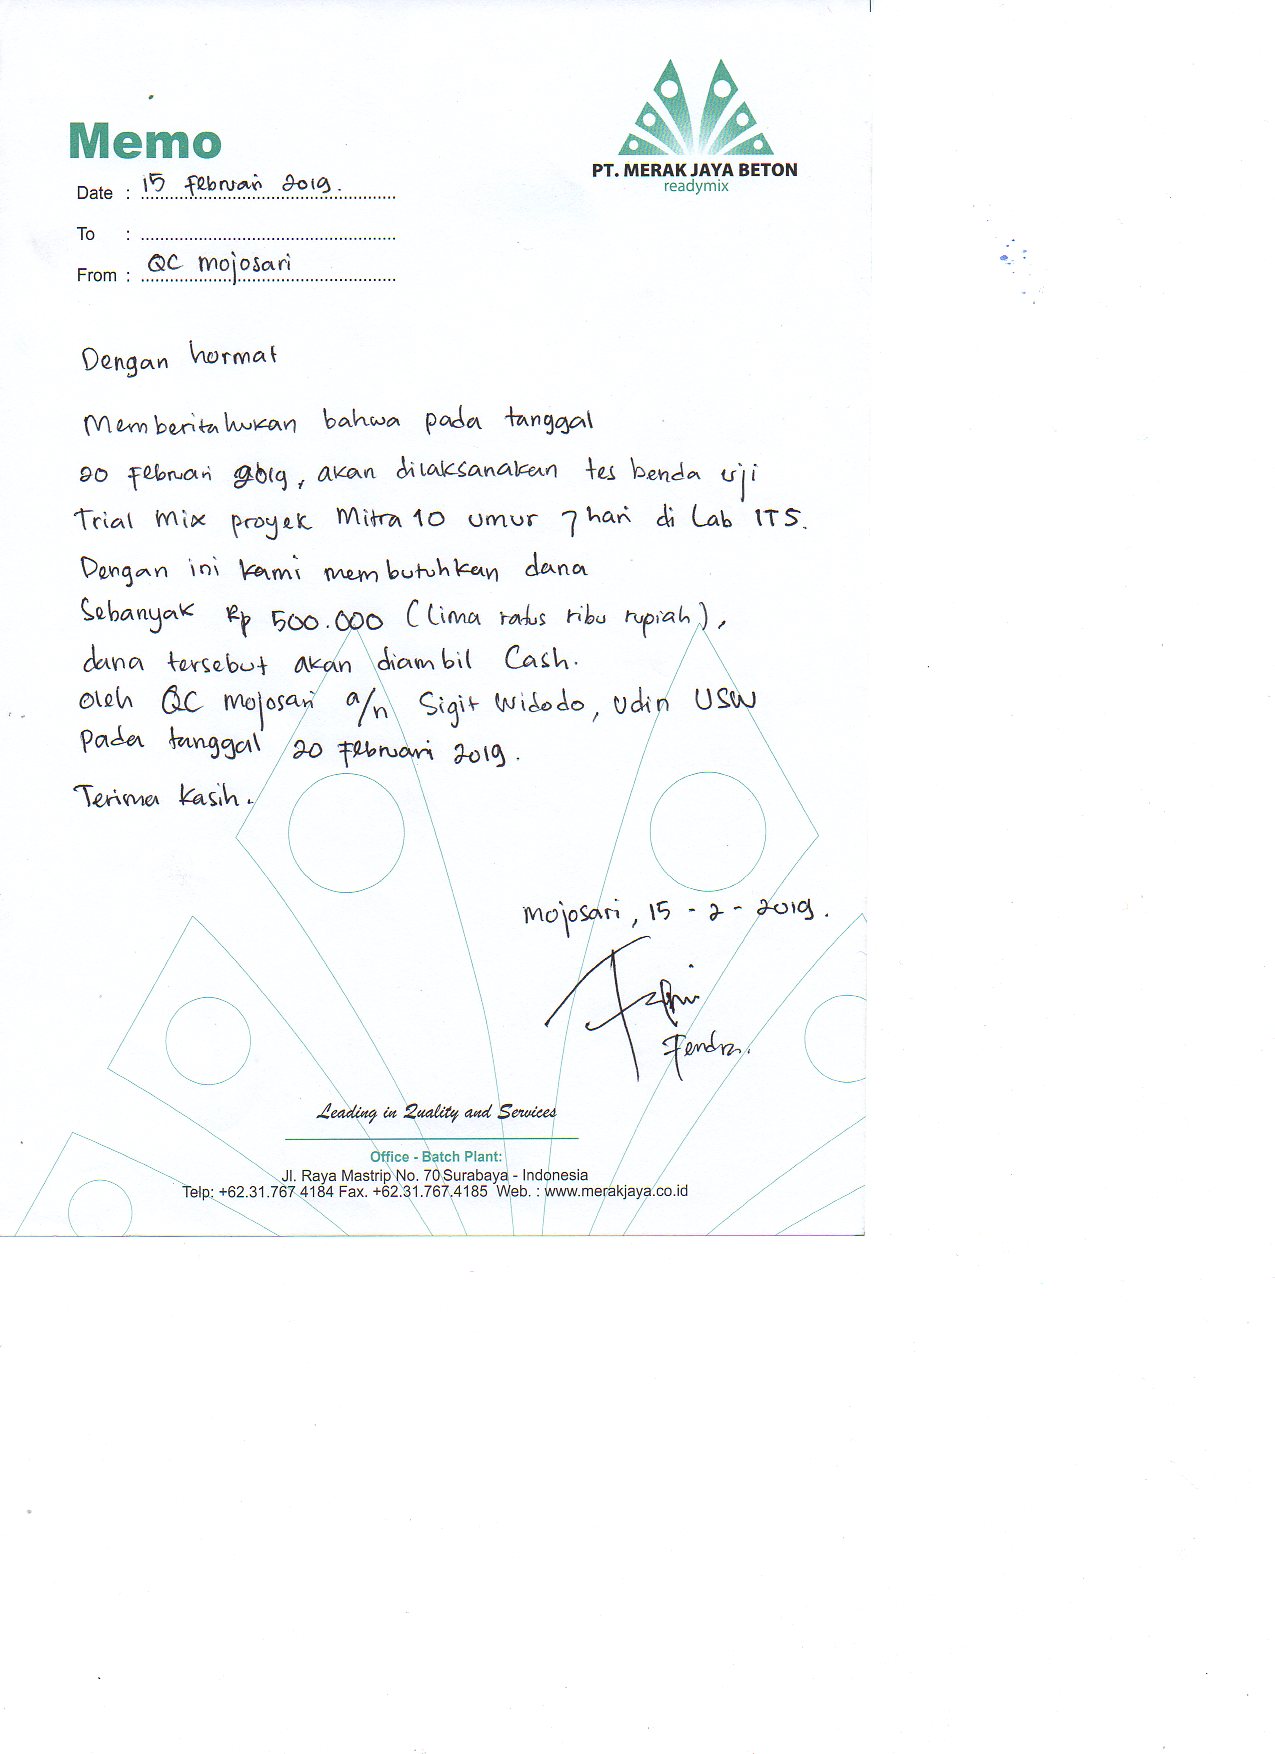 Memo
PT. MERAK JAYA BETON
readymix
Date : 15 Februari 2019.
To :
From : QC Mojosari
Dengan hormat
Memberitahukan bahwa pada tanggal
20 Februari 2019, akan dilaksanakan tes benda uji
Trial Mix proyek Mitra 10 umur 7 hari di Lab ITS.
Dengan ini kami membutuhkan dana
Sebanyak Rp 500.000 (Lima ratus ribu rupiah),
dana tersebut akan diambil Cash.
oleh QC Mojosari a/n Sigit Widodo, Udin USW
Pada tanggal 20 Februari 2019.
Terima Kasih.
Mojosari, 15 - 2 - 2019.
Fendra.
Leading in Quality and Services
Office - Batch Plant:
Jl. Raya Mastrip No. 70 Surabaya - Indonesia
Telp: +62.31.767 4184 Fax. +62.31.767.4185 Web. : www.merakjaya.co.id